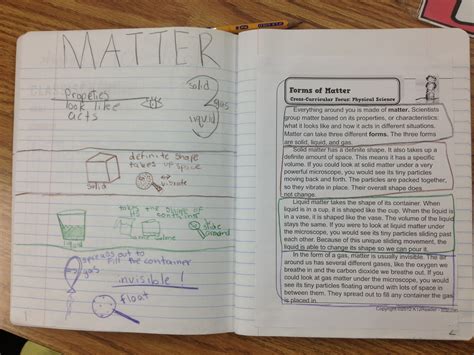 MATTER
Propeties
look like
acts
solid
gas
liquid
definite shape
takes up space
solid
vibrate
takes the shape of
container
same volume
slide
around
liquid
spreads out to
fill the container
gas
invisible!
float
1
Forms of Matter
Cross-Curricular Focus: Physical Science
Everything around you is made of matter. Scientists
group matter based on its properties, or characteristics:
what it looks like and how it acts in different situations.
Matter can take three different forms. The three forms
are solid, liquid, and gas.
Solid matter has a definite shape. It also takes up a
definite amount of space. This means it has a specific
volume. If you could look at solid matter under a very
powerful microscope, you would see its tiny particles
moving back and forth. The particles are packed together,
so they vibrate in place. Their overall shape does
not change.
Liquid matter takes the shape of its container. When
liquid is in a cup, it is shaped like the cup. When the liquid is
in a vase, it is shaped like the vase. The volume of the liquid
stays the same. If you were to look at liquid matter under
the microscope, you would see its tiny particles sliding past
each other. Because of this unique sliding movement, the
liquid is able to change its shape so we can pour it.
In the form of a gas, matter is usually invisible. The air
around us has several different gases, like the oxygen we
breathe in and the carbon dioxide we breathe out. If you
could look at gas matter under the microscope, you would
see its tiny particles floating around with lots of space in
between them. They spread out to fill any container the gas
is placed in.
Copyright ©2012 K12Reader